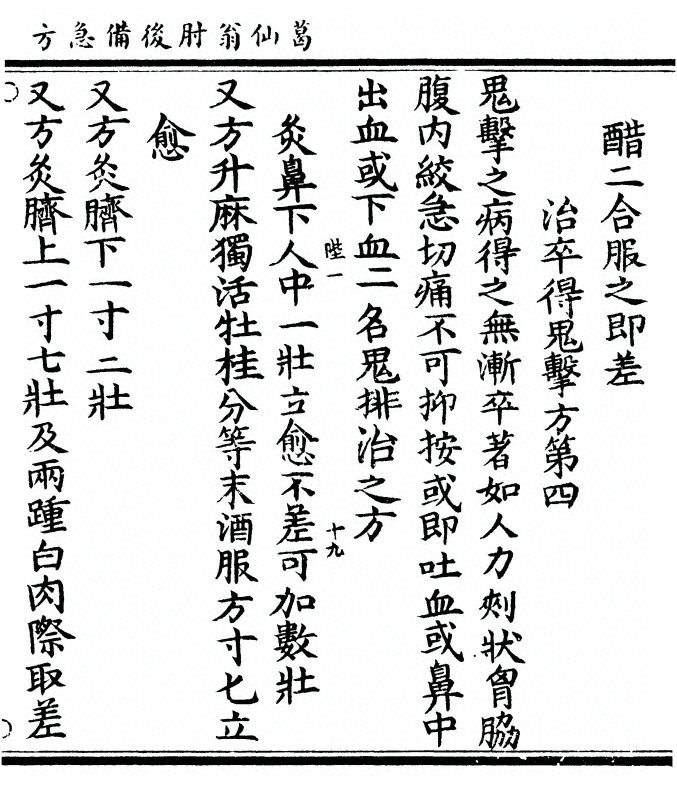 葛仙翁肘後備急方
醋二合服之即差
治卒得鬼擊方第四
鬼擊之病得之無漸卒著如人力刺狀胷脇
腹内絞急切痛不可抑按或即吐血或鼻中
出血或下血一名鬼排治之方
陛一
十九
灸鼻下人中一壯立愈不差可加數壯
又方升麻獨活牡桂分等末酒服方寸匕立
愈
又方灸臍下一寸二壯
又方灸臍上一寸七壯及兩踵白肉際取差